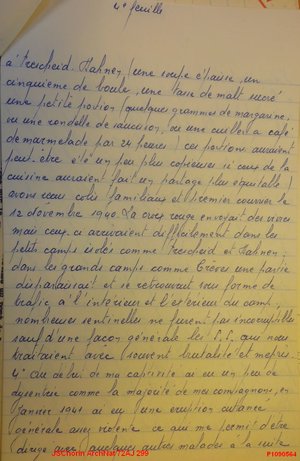 4° feuille
à Trescheid. Hahnen (une soupe épaisse, un
cinquième de boule, une tasse de malt sucré
une petite portion (quelques grammes de margarine,
ou une rondelle de saucisson, ou une cuiller à café
de marmelade par 24 heures) ces portions auraient
peut-être été un peu plus copieuses si ceux de la
cuisine auraient fait un partage plus équitable)
avons reçu colis familiaux et premier courrier le
12 décembre 1940. La croix rouge envoyait des vivres
mais ceux-ci arrivaient difficilement dans les
petits camps isolés comme Trescheid et Hahnen;
dans les grands camps comme Trèves une partie
disparaissait et se retrouvait sous forme de
trafic, à l'intérieur et l'extérieur du camp,
nombreuses sentinelles ne furent pas incorruptibles
sauf d'une façon générale les S.S. qui nous
traitaient avec souvent brutalité et mépris.
4° Au début de ma captivité ai eu un peu de
dysenterie comme la majorité de mes compagnons, en
Janvier 1941 ai eu une éruption cutanée
générale assez violente ce qui me permit d'être
dirigé avec quelques autres malades à la suite
JSChorin ArchNat 72AJ 299
P1090564